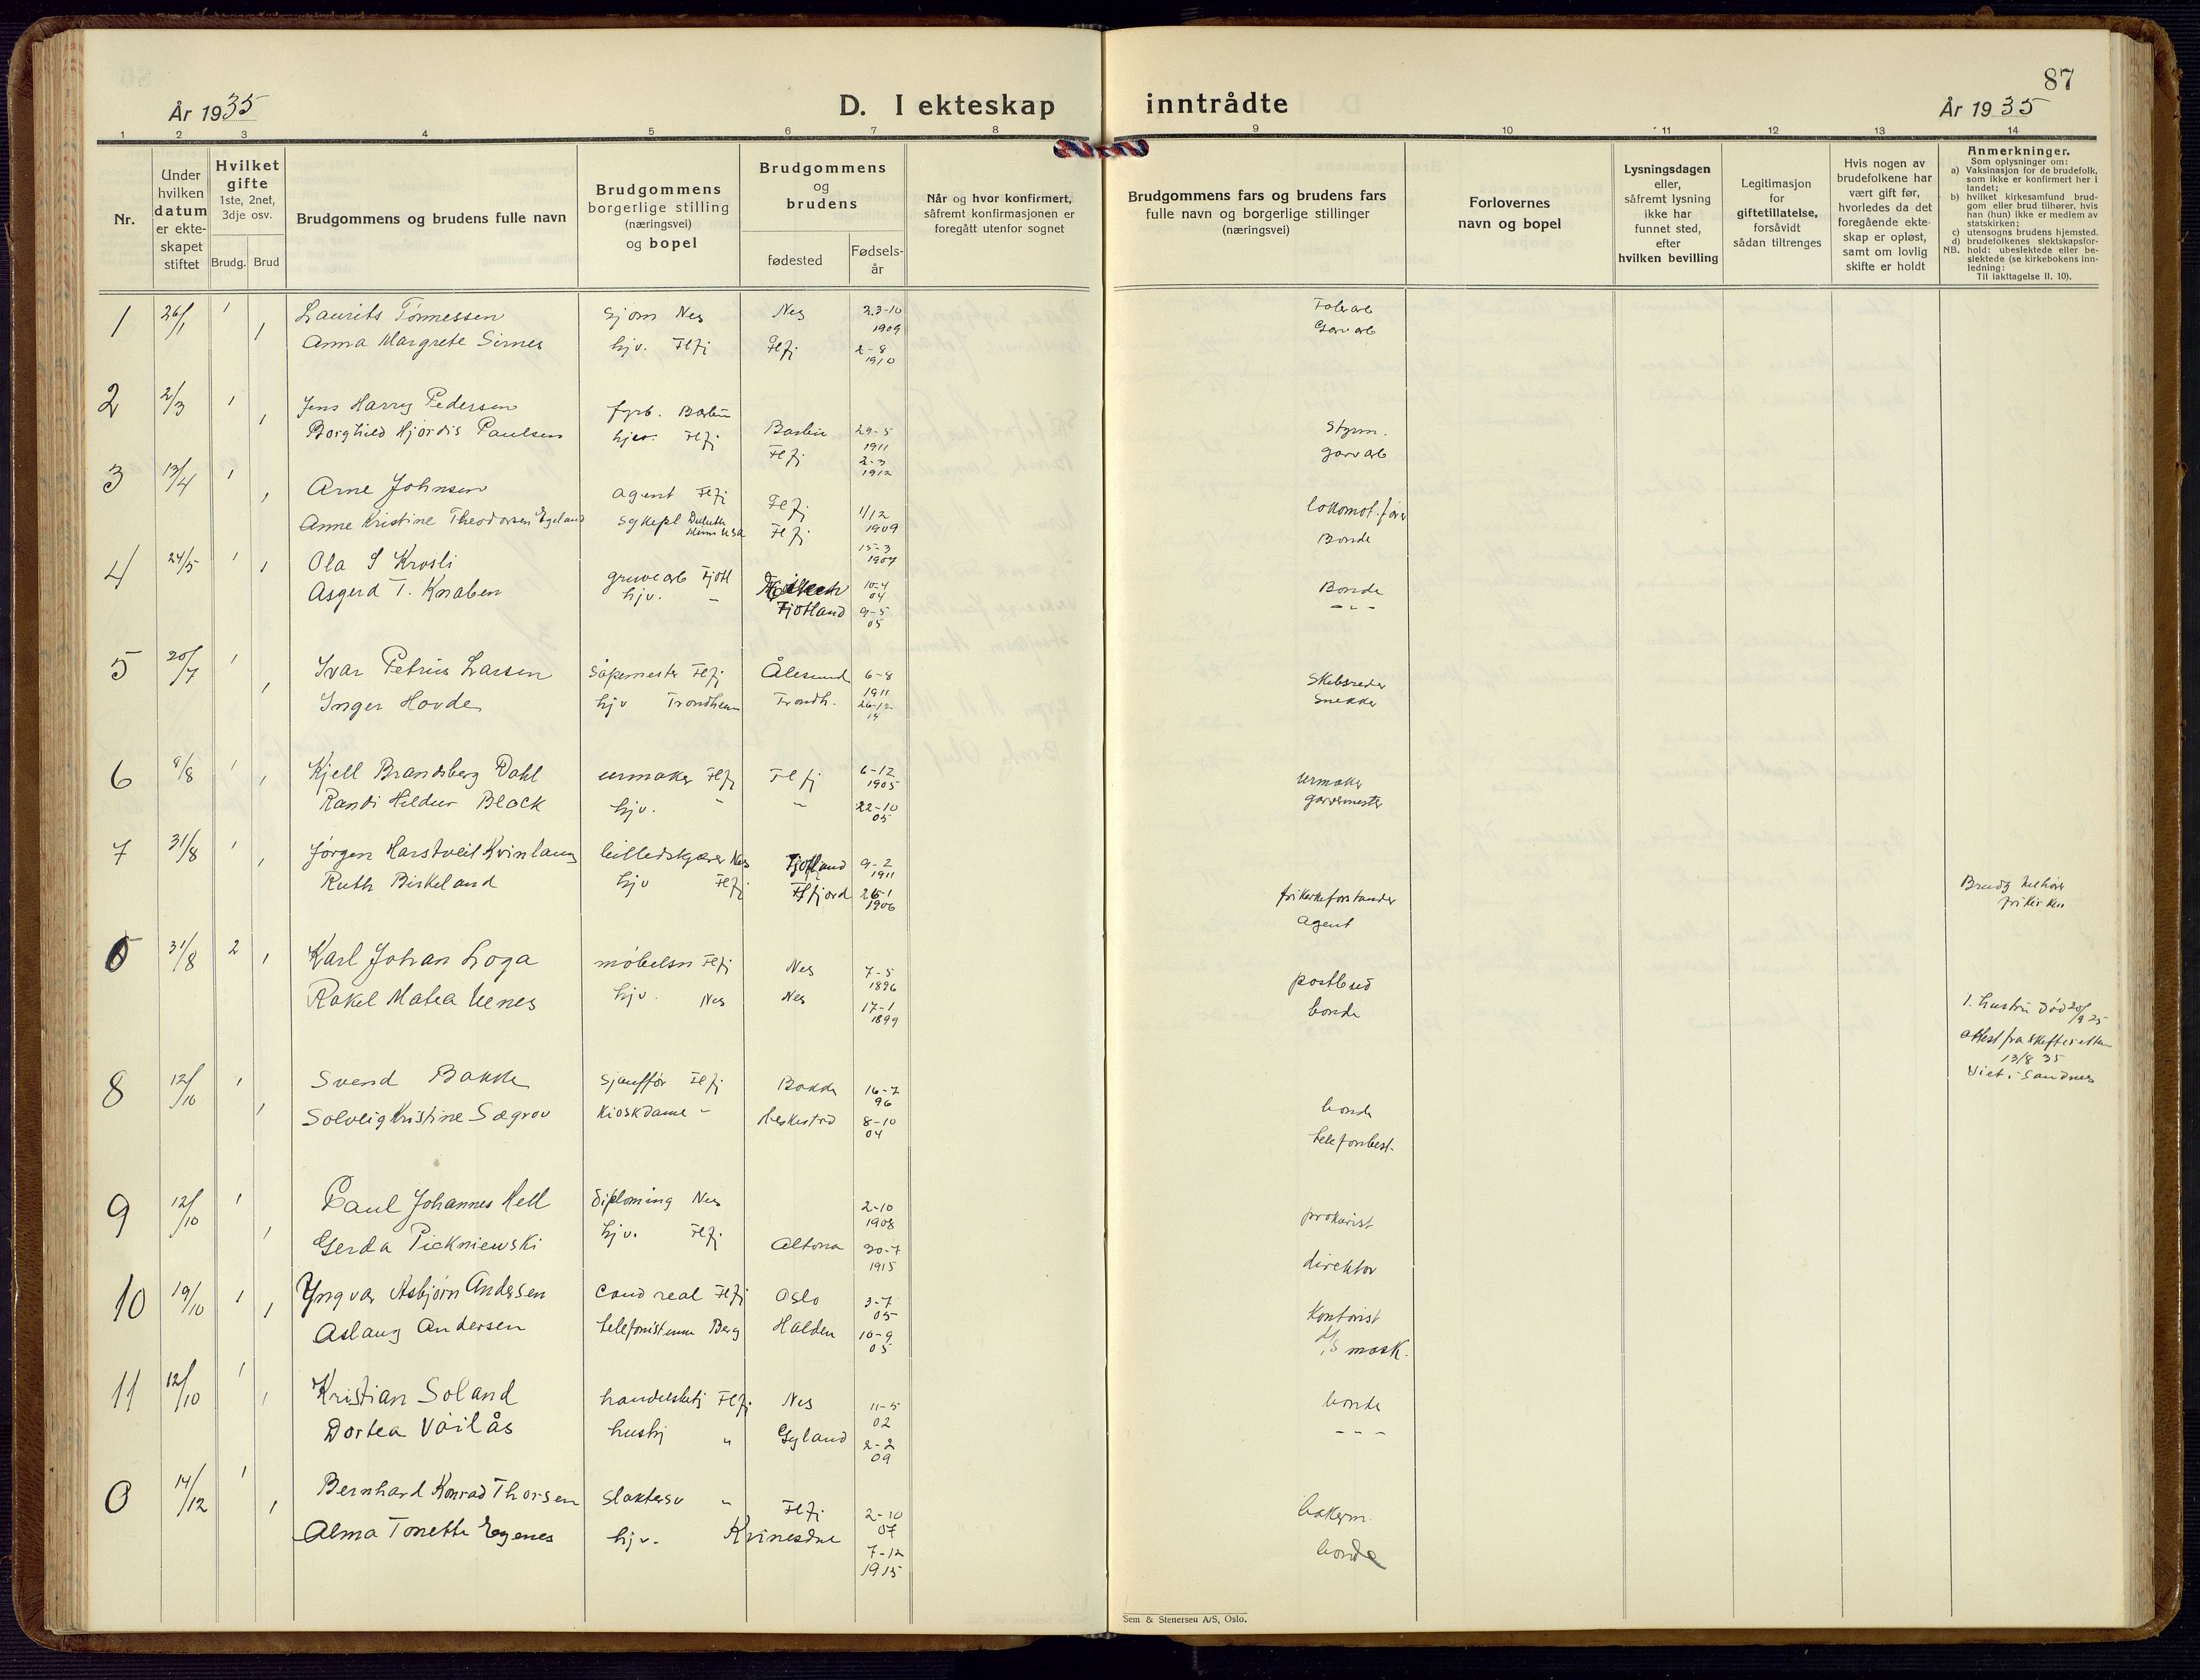 87
År 1935
D. I ekteskap inntrådte
År 1935
1 2 3 4 5 6 7 8 9 10 11 12 13 14
Nr.
Under hvilken datum er ekte-skapet stiftet
Hvilket gifte 1ste, 2net, 3dje osv.
Brudg. Brud
Brudgommens og brudens fulle navn
Brudgommens borgerlige stilling (næringsvei) og bopel
Brudgommens og brudens
fødested
Fødsels-år
Når og hvor konfirmert, såfremt konfirmasjonen er foregått utenfor sognet
Brudgommens fars og brudens fars fulle navn og borgerlige stillinger (næringsvei)
Forlovernes navn og bopel
Lysningsdagen eller, såfremt lysning ikke har funnet sted, efter hvilken bevilling
Legitimasjon for giftetillatelse, forsåvidt sådan tiltrenges
Hvis nogen av brudefolkene har vært gift før, hvorledes da det foregående ekte-skap er opløst, samt om lovlig skifte er holdt
Anmerkninger.
Som oplysninger om:
a) Vaksinasjon for de brudefolk, som ikke er konfirmert her i landet;
b) hvilket kirkesamfund brud-gom eller brud tilhører, hvis han (hun) ikke er medlem av statskirken;
c) utensogns brudens hjemsted.
d) brudefolkenes slektskapsfor-hold: ubeslektede eller be-slektede (se kirkebokens inn-ledning:
NB. Til iakttagelse II. 10).
1 26/1 1 Laurits Tønnessen Sjøm Nes Nes 23-10 1909 Fabrarb
1 Anna Margrete Sirnes hjv. Flfj Flfj 2-8 1910 Garvarb
2 2/3 1 Jens Harry Pedersen fyrb. Barbu Barbu 29-5 1911 Styrm.
1 Borghild Hjørdis Paulsen hjv. Flfj Flfj 2-3 1912 garvarb
3 13/4 1 Arne Johnsen agent Flfj Flfj 1/12 1909 lokomot.fører
1 Anne Kristine Theodorsen Egeland Sykepl Duluth Minn USA Flfj 15-3 1907 Bonde
4 24/5 1 Ola S Krosli gruvearb Fjotl 10-4 04 Bonde
1 Asgerd T. Knaben hjv. - Fjotland 9-5 05 - - -
5 20/7 1 Ivar Petrus Larsen Såpemester Flfj Ålesund 6-8 1911 Skibsreder
1 Inger Hovde hjv Trondheim Trondh. 26-12 14 Snekker
6 8/8 1 Kjell Brandsberg Dahl urmaker Flfj Flfj 6-12 1905 Urmaker
1 Randi Hildur Block hjv. - - 22-10 05 garvermester
7 31/8 1 Jørgen Harstveit Kvinlaug billedskjærer Nes Fjotland 9-2 1911 frikirkeforstander
1 Ruth Birkeland hjv Flfj Flfjord 26-1 1906 agent
Brudg tilhører frikirken
0 31/8 2 Karl Johan Loga møbelsn Flfj Nes 7-5 1896 postbud
1 Rakel Matea Uenes hjv. Nes Nes 17-1 1899 bonde
1. hustru død 20/9 25
attest fra skifteretten
13/8 35
Viet i Sandnes
8 12/10 1 Svend Bakke Sjauffør Flfj Bakke 16-7 96 bonde
1 Solveig Kristine Sægrov Kioskdame - Heskestad 8-10 04 telefonbest.
9 12/10 1 Paul Johannes Hell diploming Nes 2-10 1908 prokurist
1 Gerda Pickniewski hjv. Flfj Altona 30-7 1915 direktør
10 19/10 1 Yngvar Asbjørn Andersen Cand real Flfj Oslo 3-7 05 Kontorist
1 Aslaug Andersen telefonistinne Berg Halden 10-9 05 d/s mask.
11 12/10 1 Kristian Soland handelsbetj Flfj Nes 11-5 02 bonde
1 Dortea Vailås hushj " Gyland 2-2 09 - - -
0 14/12 1 Bernhard Konrad Thorsen Slaktersv " Flfj 2-10 07 bakerm.
1 Alma Tonette Egenes hjv. Kvinesdal 7-12 1915 bonde
Sem & Stenersen A/S, Oslo.